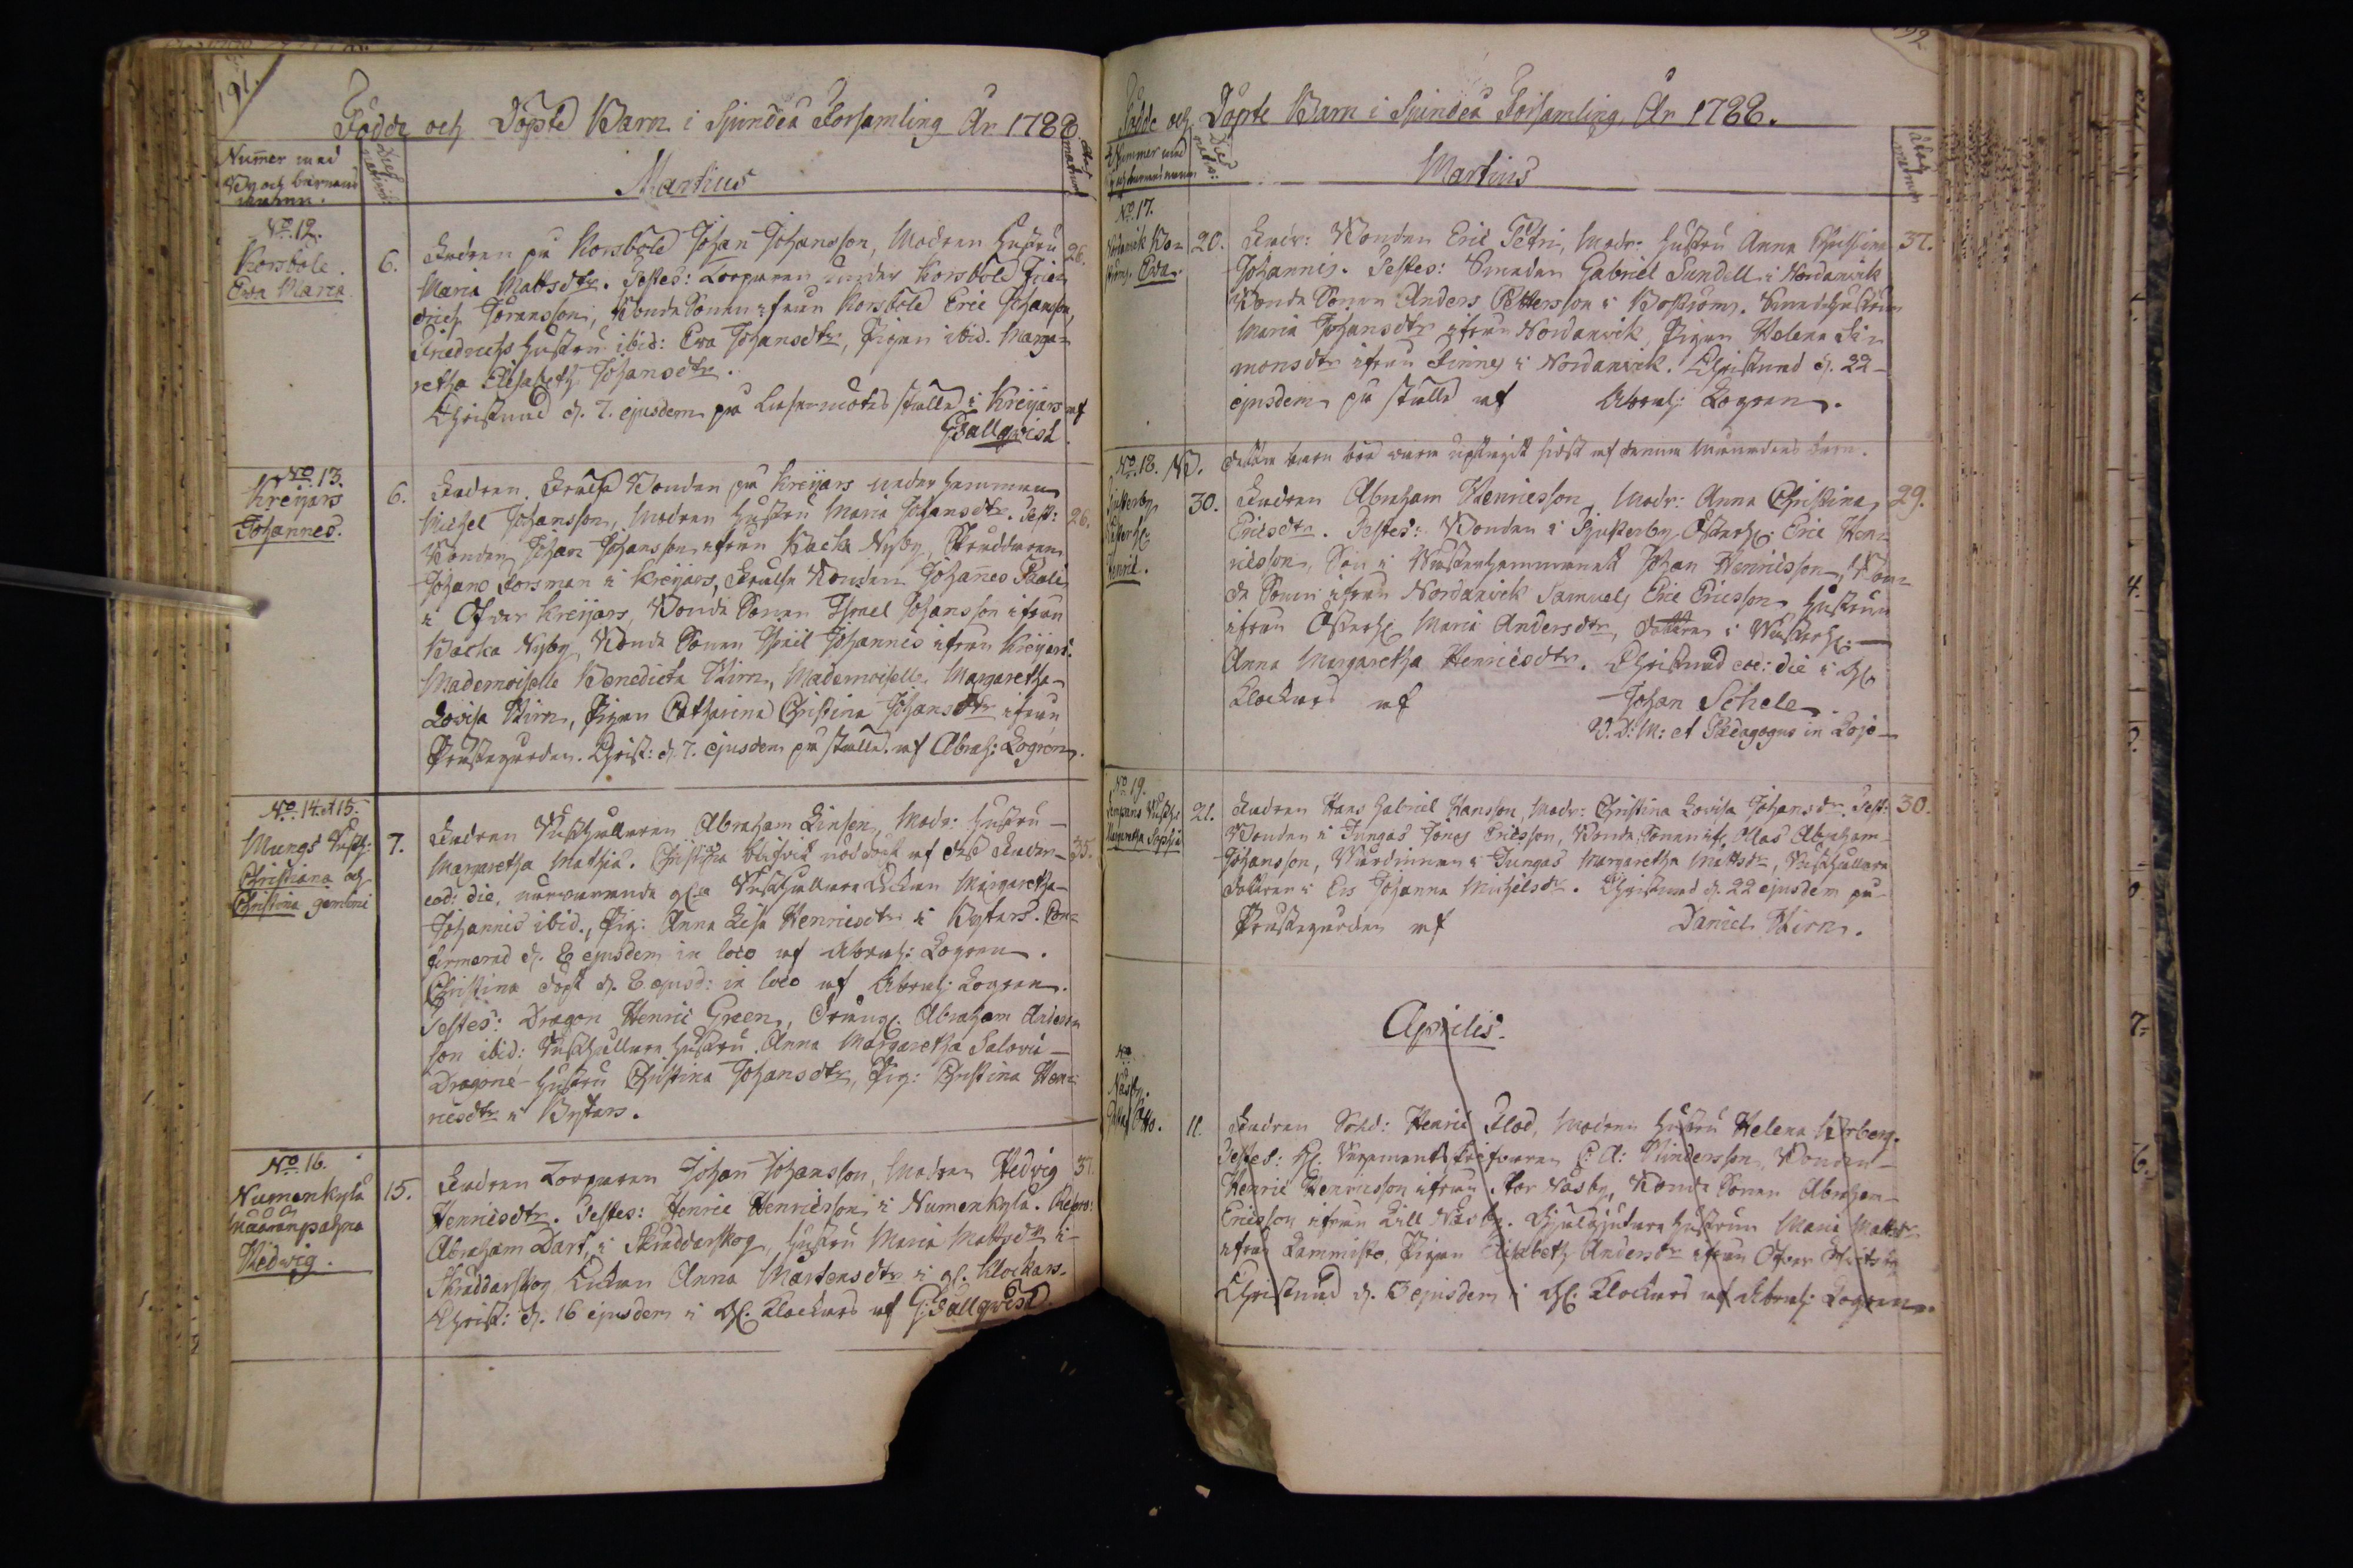 191.
Födde och Döpte Barn i Spindeå Forsamling År 1788
Numer med
By och barnens
namn.
Dies
Martius
No. 12.
Korsbole.
Ewa Maria
6.
Fadren på Korsbole Johan Johansson, Modren hustru
26.
Maria Mattsdtr. Testes: Torparen under Korsbole Frie-
drich Joransson, Bonde Sonen ifrån Korsbole Eric Johansson,
Friedrichs hustru ibid: Ewa Johansdtr, Pigan ibid. Marga-
retha Elisabeth Johansdtr.
Christnad d. 7. ejusdem på Läsemötes stället i Kreijars af
G: Sallqwist.
No. 13.
Kreijars
Johannes.
6.
Fadren Frälse Bonden på Kreijars
Michel Johansson, Modren hustru Maria Johansdtr. Test:
26.
Bonden Johan Johansson ifrån Backa Nyby, Skräddaren
Johans Forsman i Kreijars, Frälse Bonden Johannes Pauli
i Ofver Kreijars, Bonde Sonen Israel Johansson ifrån
Backa Nyby, Bonde Sonen Israel Johannis ifrån Kreijars.
Mademoiselle Benedicta Wirn, Mademoiselle Margaretha
Lovisa Wirn, Pigan Catharina Christina Johansdtr ifrån
Prästegården. Christ: d. 7. ejusdem på stället af Abrah: Logren.
No. 14 et 15.
Mungs
Christiana och
Christina gemini
7.
Fadren Abraham Linsen, Modr: hustru
Margaretha Mathiæ. Christiana blifvit nöddöpt af dess Fader
35.
eod: die, närvarande Margaretha
Johannis ibid., Pig: Anna Lisa Henricsdtr i Bysars. Con-
firmerad d. 8 ejusdem in loco af Abrah: Logren.
Christina döpt d. 8 ejusd: in loco af Abrah: Logren.
Testes: Dragon Henric Green, Dräng: Abraham Anders
son ibid: hustru Anna Margaretha Salovii
Dragone hustru Christina Johansdtr, Pig: Christina Hen-
ricsdtr i Bysars.
No. 16.
Numenkylä
Määränpähjä
Hedvig.
15.
Fadren Torparen Johan Johansson, Modren Hedvig
37.
Henricsdtr. Testes: Henric Henricsson i Numenkylä.
Abraham Dart, i Skräddarskog, hustru Maria Mattsdtr i
Skräddarskog Anna Mårtensdtr i Klockars.
Christ: d. 16 ejusdem i Klockars af G: Sallqwist.
192
Födde och Döpte Barn i Spindeå Forsamling År 1788.
Nummer med
Dies
Martius
No. 17.
Nordanvik
Ewa.
20.
Fadr: Bonden Eric Petri, Modr: hustru Anna Christina
37.
Johannis. Testes: Smeden Gabriel Sundell i Nordanvik
Bonde Sonen Anders Pettersson i Boström. Smedshustrun
Maria Johansdtr ifrån Nordanvik, Pigan Helena Si-
monsdtr ifrån Finnes i Nordanvik. Christnad d. 22
ejusdem på stället af Abrah: Logren.
No. 18. NB.
detta barn bör vara upptagit sidst af denna Månadens barn.
Henric.
30.
Fadren Abraham Henricsson, Modr: Anna Christina
29.
Ericsdtr. Testes: Bonden i Sjusterby Eric Hen-
ricsson, Son i Johan Henricsson, Bon-
de Sonen ifrån Nordanvik Samuels Eric Ericsson hustrun
ifrån Maria Andersdtr, dottren i
Anna Margaretha Henricsdtr. Christnad eod: die i
Klockars af Johan Schele
V. D: M: et Pædagogus in Lojo
No. 19.
Margaretha Sophia
21.
Fadren Hans Gabriel Hansson, Modr: Christina Lovisa Johansdtr. Test:
30.
Bonden i Jungas Jonas Ericsson, Bonde Sonen Abraham
Johansson, Wärdinnan i Jungas Margaretha Mattsdtr,
dottren i Johanna Michelsdtr. Christnad d. 22 ejusdem på
Prästegården af Daniel Wirn.
Aprilis.
No
Näsby.
11.
Fadren Sold: Henric Flod, Modren hustru Helena
Testes: C: A: Bonden
Henric Henricsson ifrån Stor Näsby, Bonde Sonen Abraham
Ericsson ifrån Lill Näsby. hustrun Maria Mattsdtr
ifrån Lammisto, Pigan Elisabeth Andersdtr ifrån Ofver
Christnad d. 13 ejusdem i Klockars af Abrah: Logren.